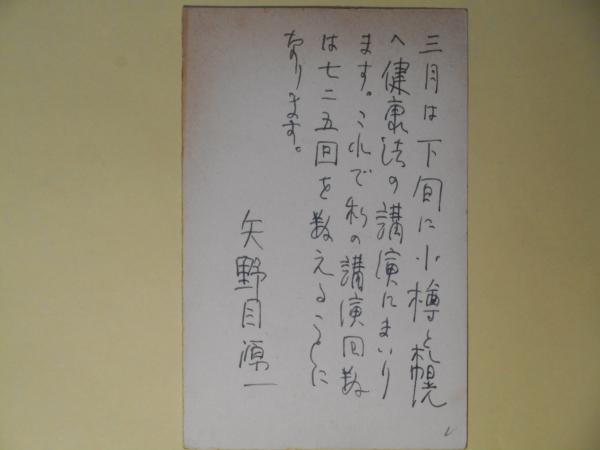 三月は下旬に小樽と札幌
へ健康法の講演にまいり
ます。これで私の講演回数
は七二五回を数えることに
なります。
矢野目源一